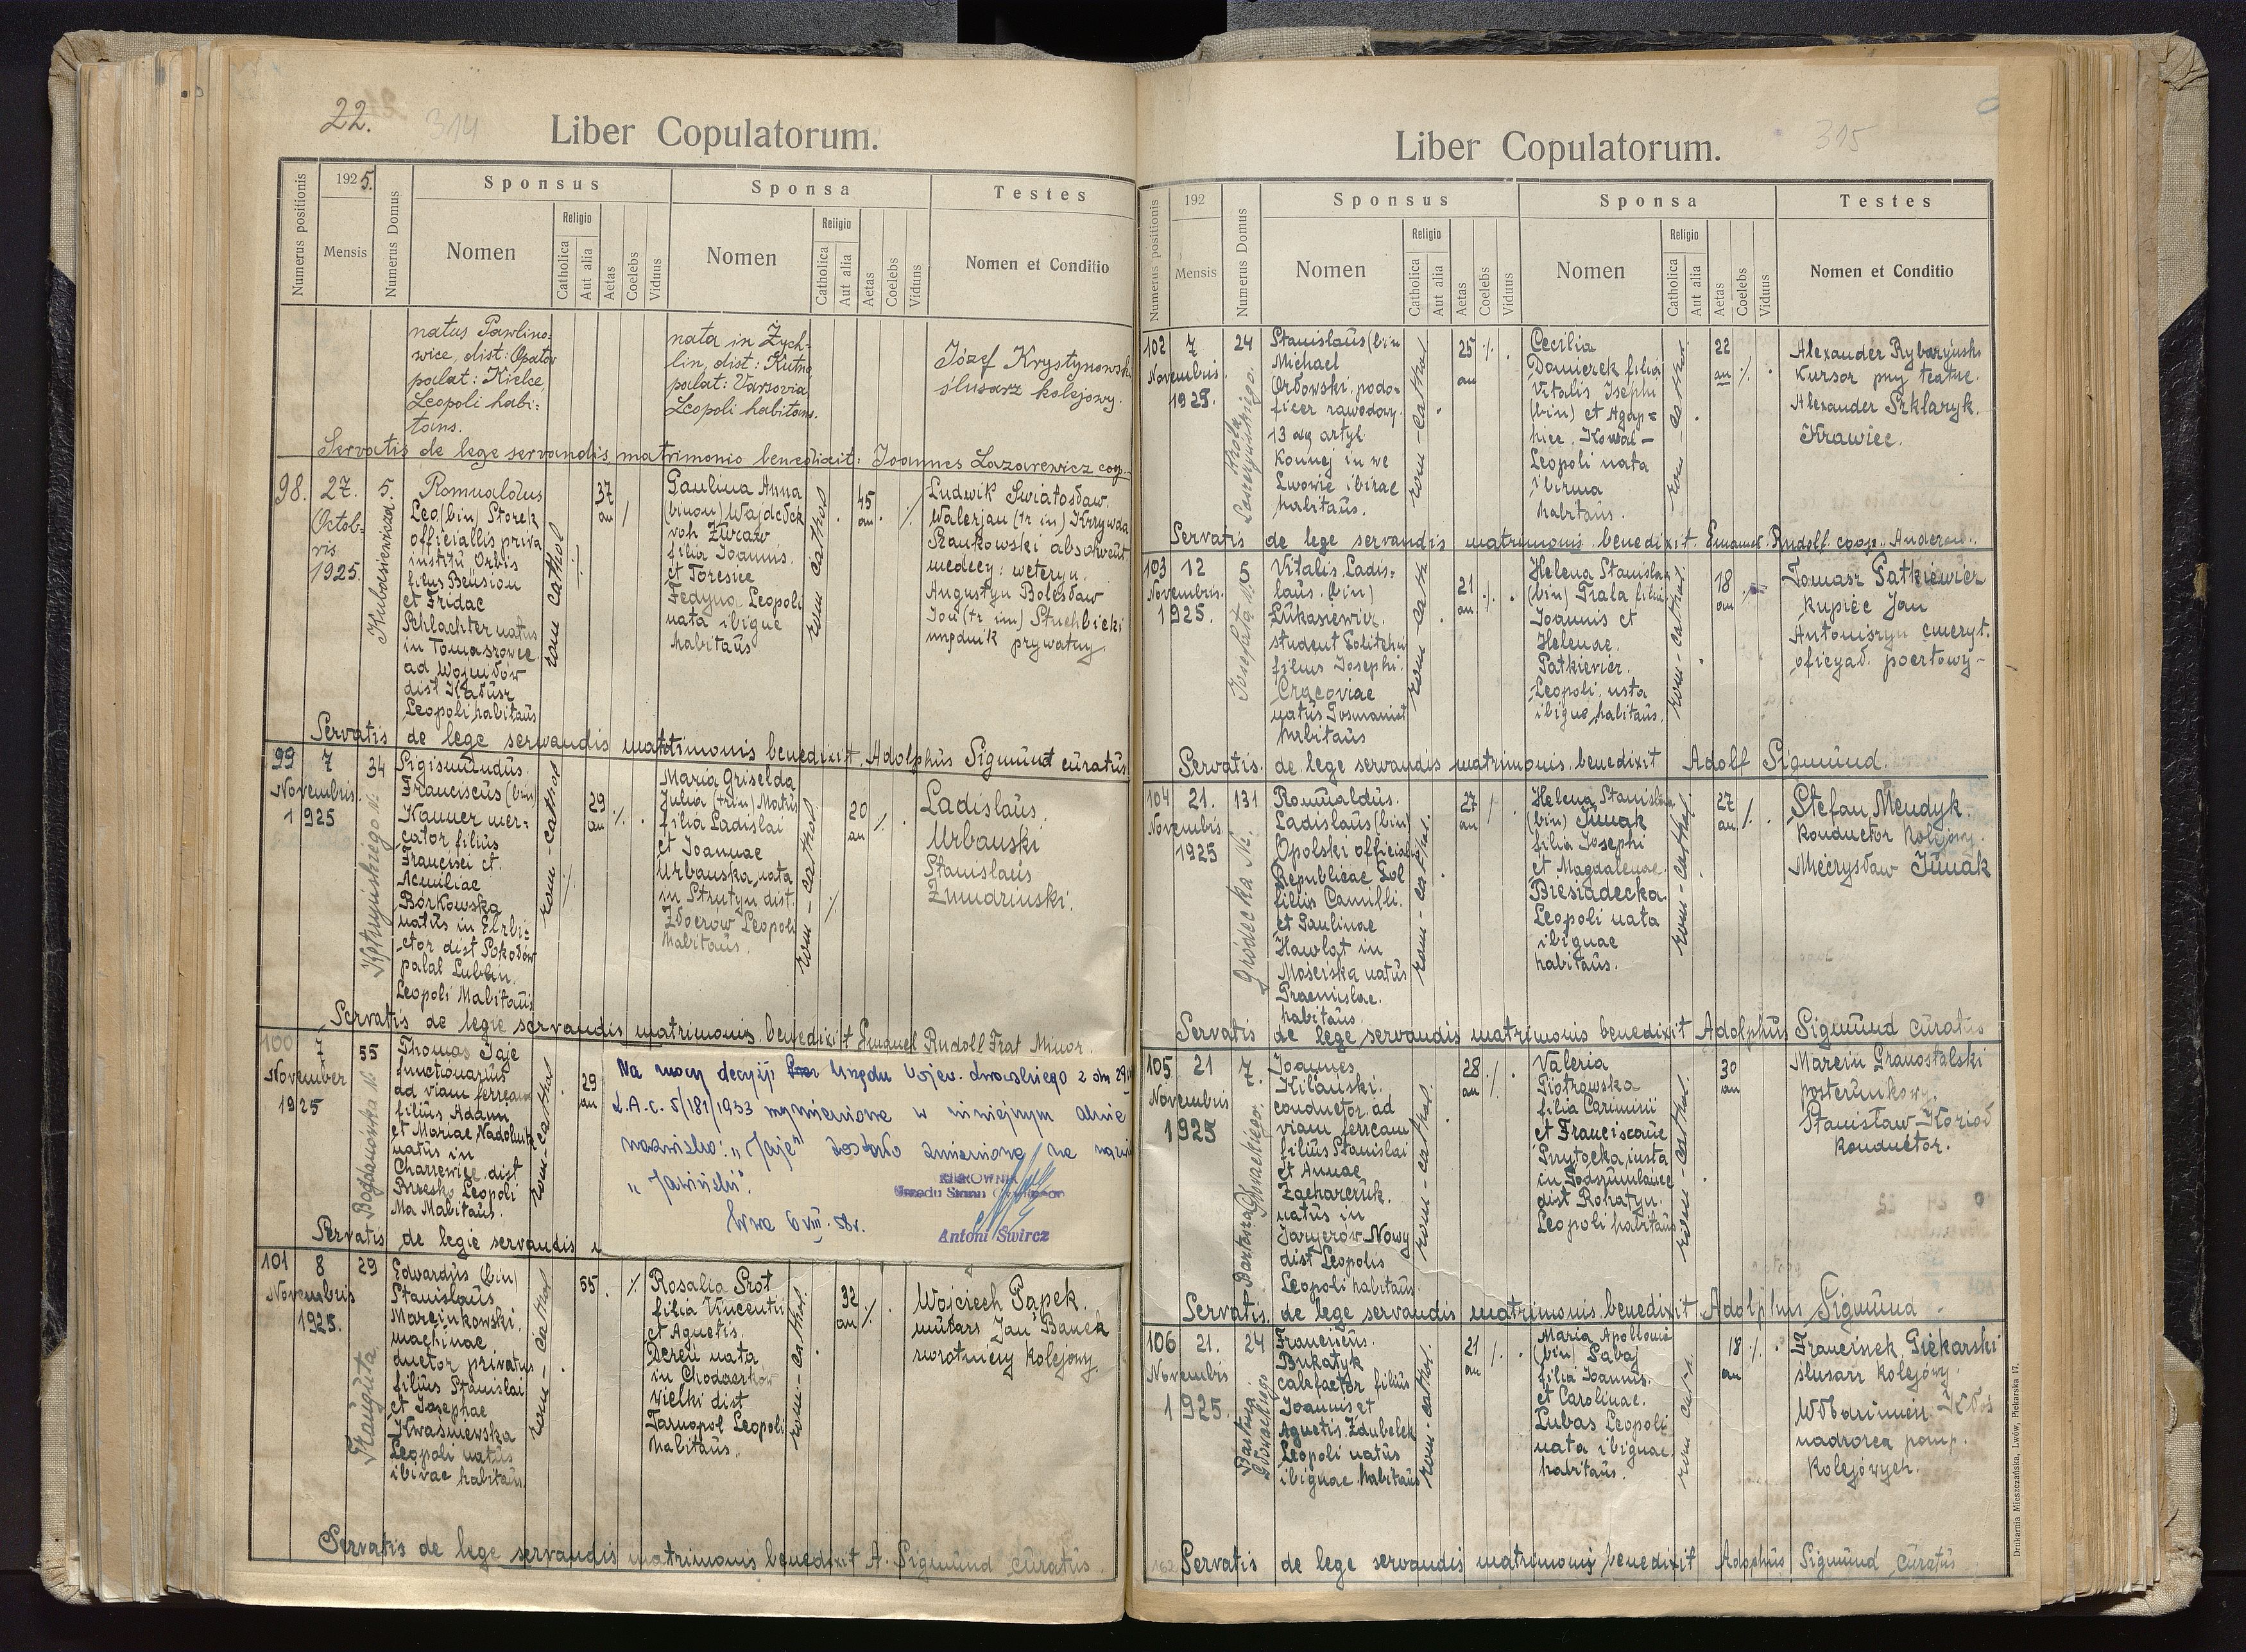 22.
314
Liber Copulatorum.
Numerus positionis
1925.
Mensis
Numerus Domus
Sponsus
Nomen
Religio
Catholica
Aut alia
Aetas
Coelebs
Viduus
Sponsa
Nomen
Religio
Catholica
Aut alia
Aetas
Coelebs
Viduus
Testes
Nomen et Conditio
natus Pawlino-
wice, dist: Opatów
palat: Kielce,
Leopoli habi-
tans.
nata in Żych-
lin, dist: Kutno
palat: Varsovia
Leopoli habitans.
Józef Krystynowsk
ślusarz kolejowy.
Servatis de lege servandis matrimonio benedixit: Joannes Lazarewicz coop.
98.
27.
Octob-
ris
1925.
5.
Romualdus
Leo (bin) Storek
officiallis priva
institu Orbis
filius Beusion
et Fridae
Schlachter natus
in Tomaszowce
ad Wojniłów
dist Kałusz
Leopoli habitaus
rom cathol
37
an
Paulina Anna
(binom)
voh Żuraw
filia Joannis
et Toresiae
Fedyna Leopoli
nata ibigue
habitaüs
rom cathol
45
an.
Ludwik Swiatosław.
Walerjan (tr in) Krzywda
absolwent
medecy: weteryn.
Augustyn Bolesław
Jan (tr im) Strehbicki
urzędnik prywatny.
Servatis de lege servandis matrimonis benedixit. Adolphüs Sigmünd cüratüs
99
7
Novembris.
1925
34
Sigismündüs
Franciscüs (bin)
Kanner mer-
cator filiüs
Francisci et
Aemiliae
Borkowska
natüs in
dist Sokołów
palal Lublin.
Leopoli Habitaüs
rom-cathol
29
an
Maria Griselda
Julia (trin)
filia Ladislai
et Joannae
Urbanska, nata
in Strutyn dist.
Złoczów Leopoli
habitaüs.
rom-cathol
20
an
Ladislaüs
Urbanski
Stanislaüs
Żmudzinski.
Servatis de legie servandis matrimonis benedixit Emanuel Rudolf Frat Minor.
100
7
November
1925
55
Bogdanówka N.
Thomas Jaje
functionarüs
ad viam ferream
filiüs Adami
et Mariae Nadolnik
natüs in
Charzewice dist
Brzesko Leopoli
Ma Mabitaüs.
rom-cathol
29
an
Na mocy decyzji Urzędu Wojew. lwowskiego z dn 29
L.A.c. 5/181/1933 wymienione w niniejszym akcie
nazwisko: „Jaje" zostało zmienione na nazwi
„Jawiński".
6 VIII. 58r.
KIEROWNIK
Urzedu Stanu Cywilnego
Antoni Śwircz
Servatis de legie servandis
101
8
Novembris
1925.
29
Traugüta
Edwardüs (bin)
Stanislaüs
Marcinkowski.
machinae
ductor privatus
filiüs Stanislai
et Josephae
Kwaśniewska
Leopoli natüs
ibivae habitaüs.
rom-cathol
55
Rosalia Prot
filia Vincentii
et Agnetis.
Dereń nata
in Chodaczków
wielki dist
Tarnopol Leopoli
habitaüs.
rom-cathol.
32
an
Wojciech Pąpek.
mülars Jan Banek
zwrotniczy kolejowy.
Servatis de lege servandis matrimonis benedixit A. Sigmünd cüratüs.
315
Liber Copulatorum.
Numerus positionis
192
Mensis
Numerus Domus
Sponsus
Nomen
Religio
Catholica
Aut alia
Aetas
Coelebs
Viduus
Sponsa
Nomen
Religio
Catholica
Aut alia
Aetas
Coelebs
Viduus
Testes
Nomen et Conditio
102
7
Novembris.
1925.
24
Stanislaüs (bin
Michael
Orłowski podo-
ficer zawodowy.
13 artyl
Konnej in we
Lwowie ibirae
habitaüs.
rom-cathol.
25
an
Cecilia
Domerek filia
Vitalis Josephi
(bin) et Agap-
Kowal-
Leopoli nata
habitaüs.
rom-cathol.
22
an
Alexander
Kursor przy teatrze.
Alexander Szklaryk.
Krawiec.
Servatis de lege servandis matrimonis benedixit. Emanuel Rudolf coop.
103
12
Novembris.
1925.
5
Josephata N.
Vitalis Ladis-
laüs (bin)
Łükasiewicz.
student
filius Josephi.
Cracoviae
natüs
habitaüs
rom-cath
21
an
Helena Stanisla
(bin) Fiala filia
Joannis et
Helenae.
Patkiewicz.
Leopoli nata
ibigue habitaüs.
rom-cathol.
18
an
Tomasz Patkiewicz
kupiec Jan
Antoniszyn emeryt.
oficyał. pocztowy-
Servatis. de lege servandis matrimonis. benedixit Adolf Sigmünd.
104
21.
Novembris
1925
131
Grodecka N.
Romüaldüs.
Ladislaüs (bin)
Opolski official
Republicae Pol
filiüs Camilli.
et Paulinae
Hawlat in
Mościska natüs
Praemislae.
habitaüs.
rom-cathol.
27
an
Helena Stanislava
(bin) Jünak
filia Josephi
et Magdalenae
Biesiadecka
Leopoli nata
ibiguae
habitaüs.
rom-cathol.
27
an
Stefan Mendyk.
konductor Kolejowy
Mieczysław Jünak
Servatis de lege servandis matrimonis benedixit Adolphüs Sigmünd cüratüs
105
21
Novembris
1925
7.
Joannes
Kilanski.
conductor ad
viam ferream
filiüs Stanislai
et Annae
Zacharczük.
natüs in
Jaryczów Nowy
dist Leopolis
Leopoli habitaüs.
rom-cathol.
28
an
Valeria
Piotrowska
filia Carimirii
et Franciscaüe
Przytocka
in
dist Rohatyn.
Leopoli habitaüs
rom-cathol.
30
an
Marcin Granostalski
posterünkowy.
Stanisław Kozioł
Konductor.
Servatis. de lege servandis matrimonis benedixit Adolphüs Sigmünd
106
21.
Novembris
1925.
24
Franciscüs.
Bukatyk
calefactor filiüs
Joannis et
Agnetis Zdubelek
Leopoli natüs
ibiguae habitaüs
rom-cathol.
21
an
Maria Apollonia
(bin) Sabaj
filia Joannis.
et Carolinae.
Lubas Leopoli
nata ibiguae
habitaüs.
rom cath.
18
an
Franciszek Piekarski
ślusarz kolejowy.
Włodzimierz Kłos
nadzorca pomp.
kolejowych.
Servatis de lege servandis matrimonis benedixit Adolphüs Sigmünd cüratüs
Drukarnia Mieszczańska, Lwów, Piekarska 17.